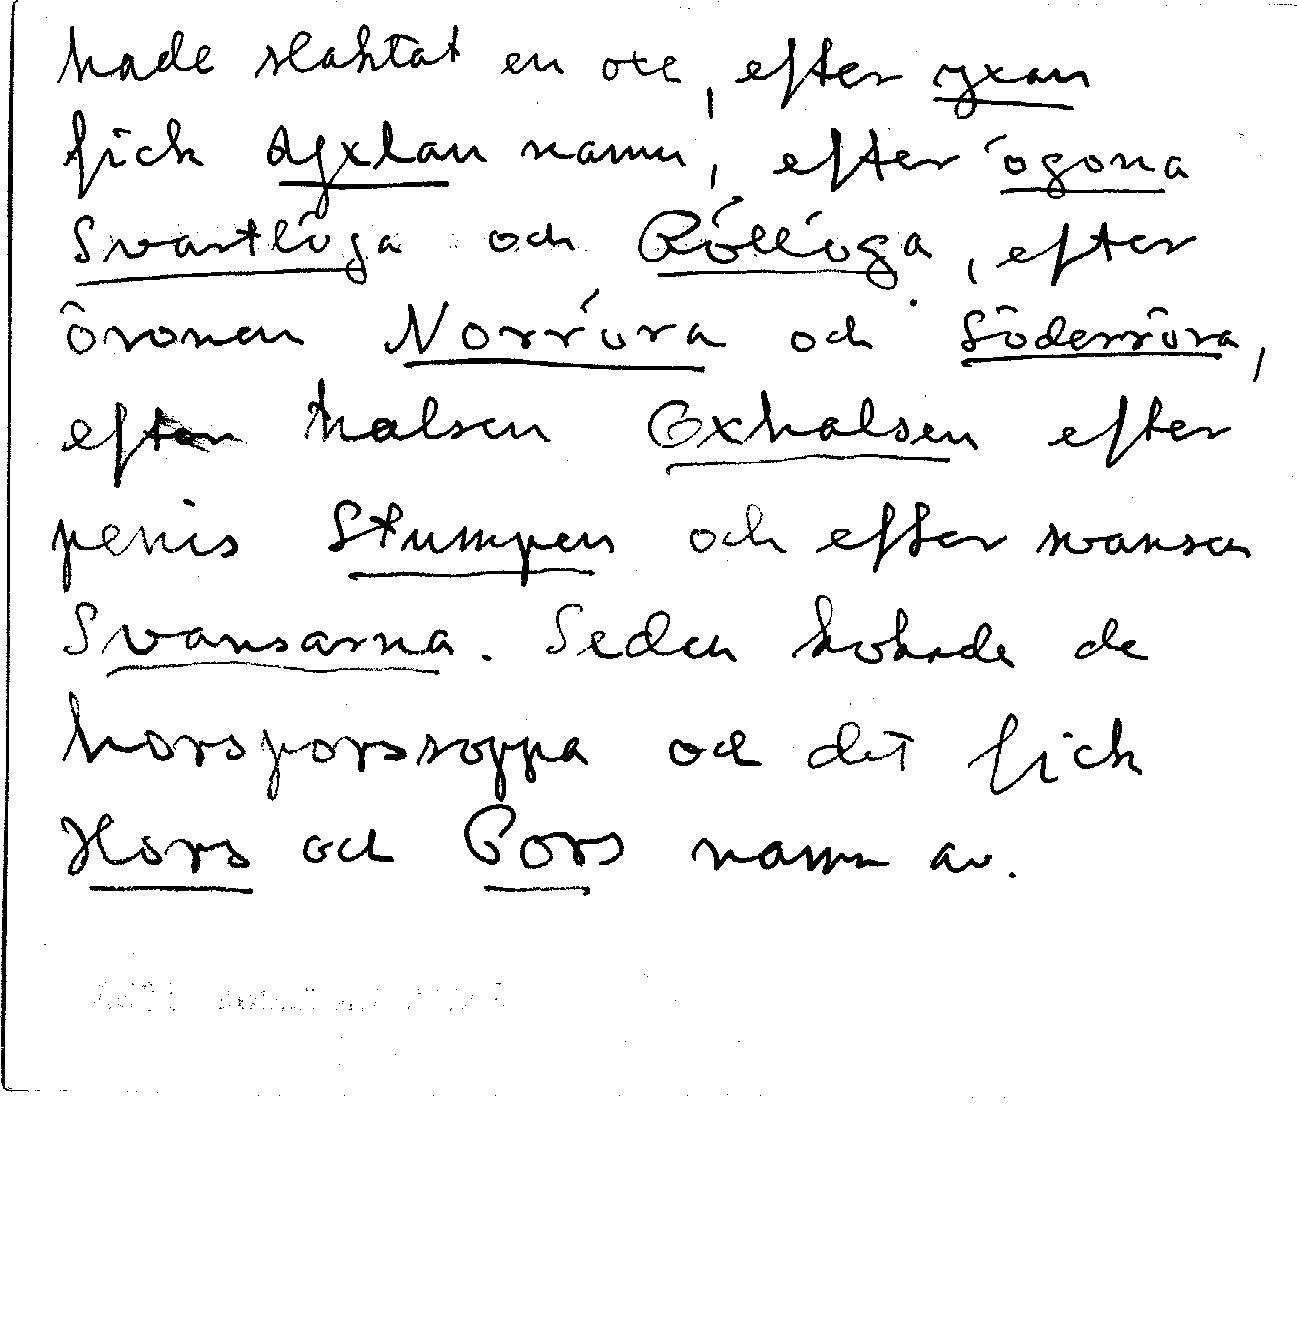 hade slaktat en oxe, efter yxan
fick Yxlan namn, efter ögona
Svartlöga och Rölllöga, efter
öronen Norröra och Söderröra,
efter halsen Oxhalsen efter
penis Stumpen och efter svansen
Svansarna. Seden kokade de
horsporssoppa och det fick
Hors och Pors namn av.